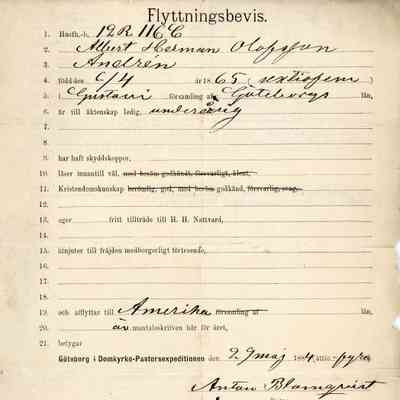 Flyttningsbevis.
1. Husfh.-b. 12 R 116 C
2. Albert Herman Olofsson
3. Andrén
4. född den 6/4 år 1865 (sextiofem)
5. i Gustavi församling af Göteborgs län,
6. är till äktenskap ledig, underårig
7.
8.
9. har haft skyddskoppor,
10. läser innantill väl, med beröm godkänd, försvarligt, klent,
11. Kristendomskunskap berömlig, god, med beröm godkänd, försvarlig, svag,
12.
13. eger fritt tillträde till H. H. Nattvard,
14.
15. åtnjuter till fräjden medborgerligt förtroende,
16.
17.
18.
19. och afflyttar till Amerika församling af län,
20. är mantalsskrifven här för året,
21. betygar
Göteborg i Domkyrko-Pastorsexpeditionen den 29 maj 1884, åttio-fyra
Anton Blomqvist